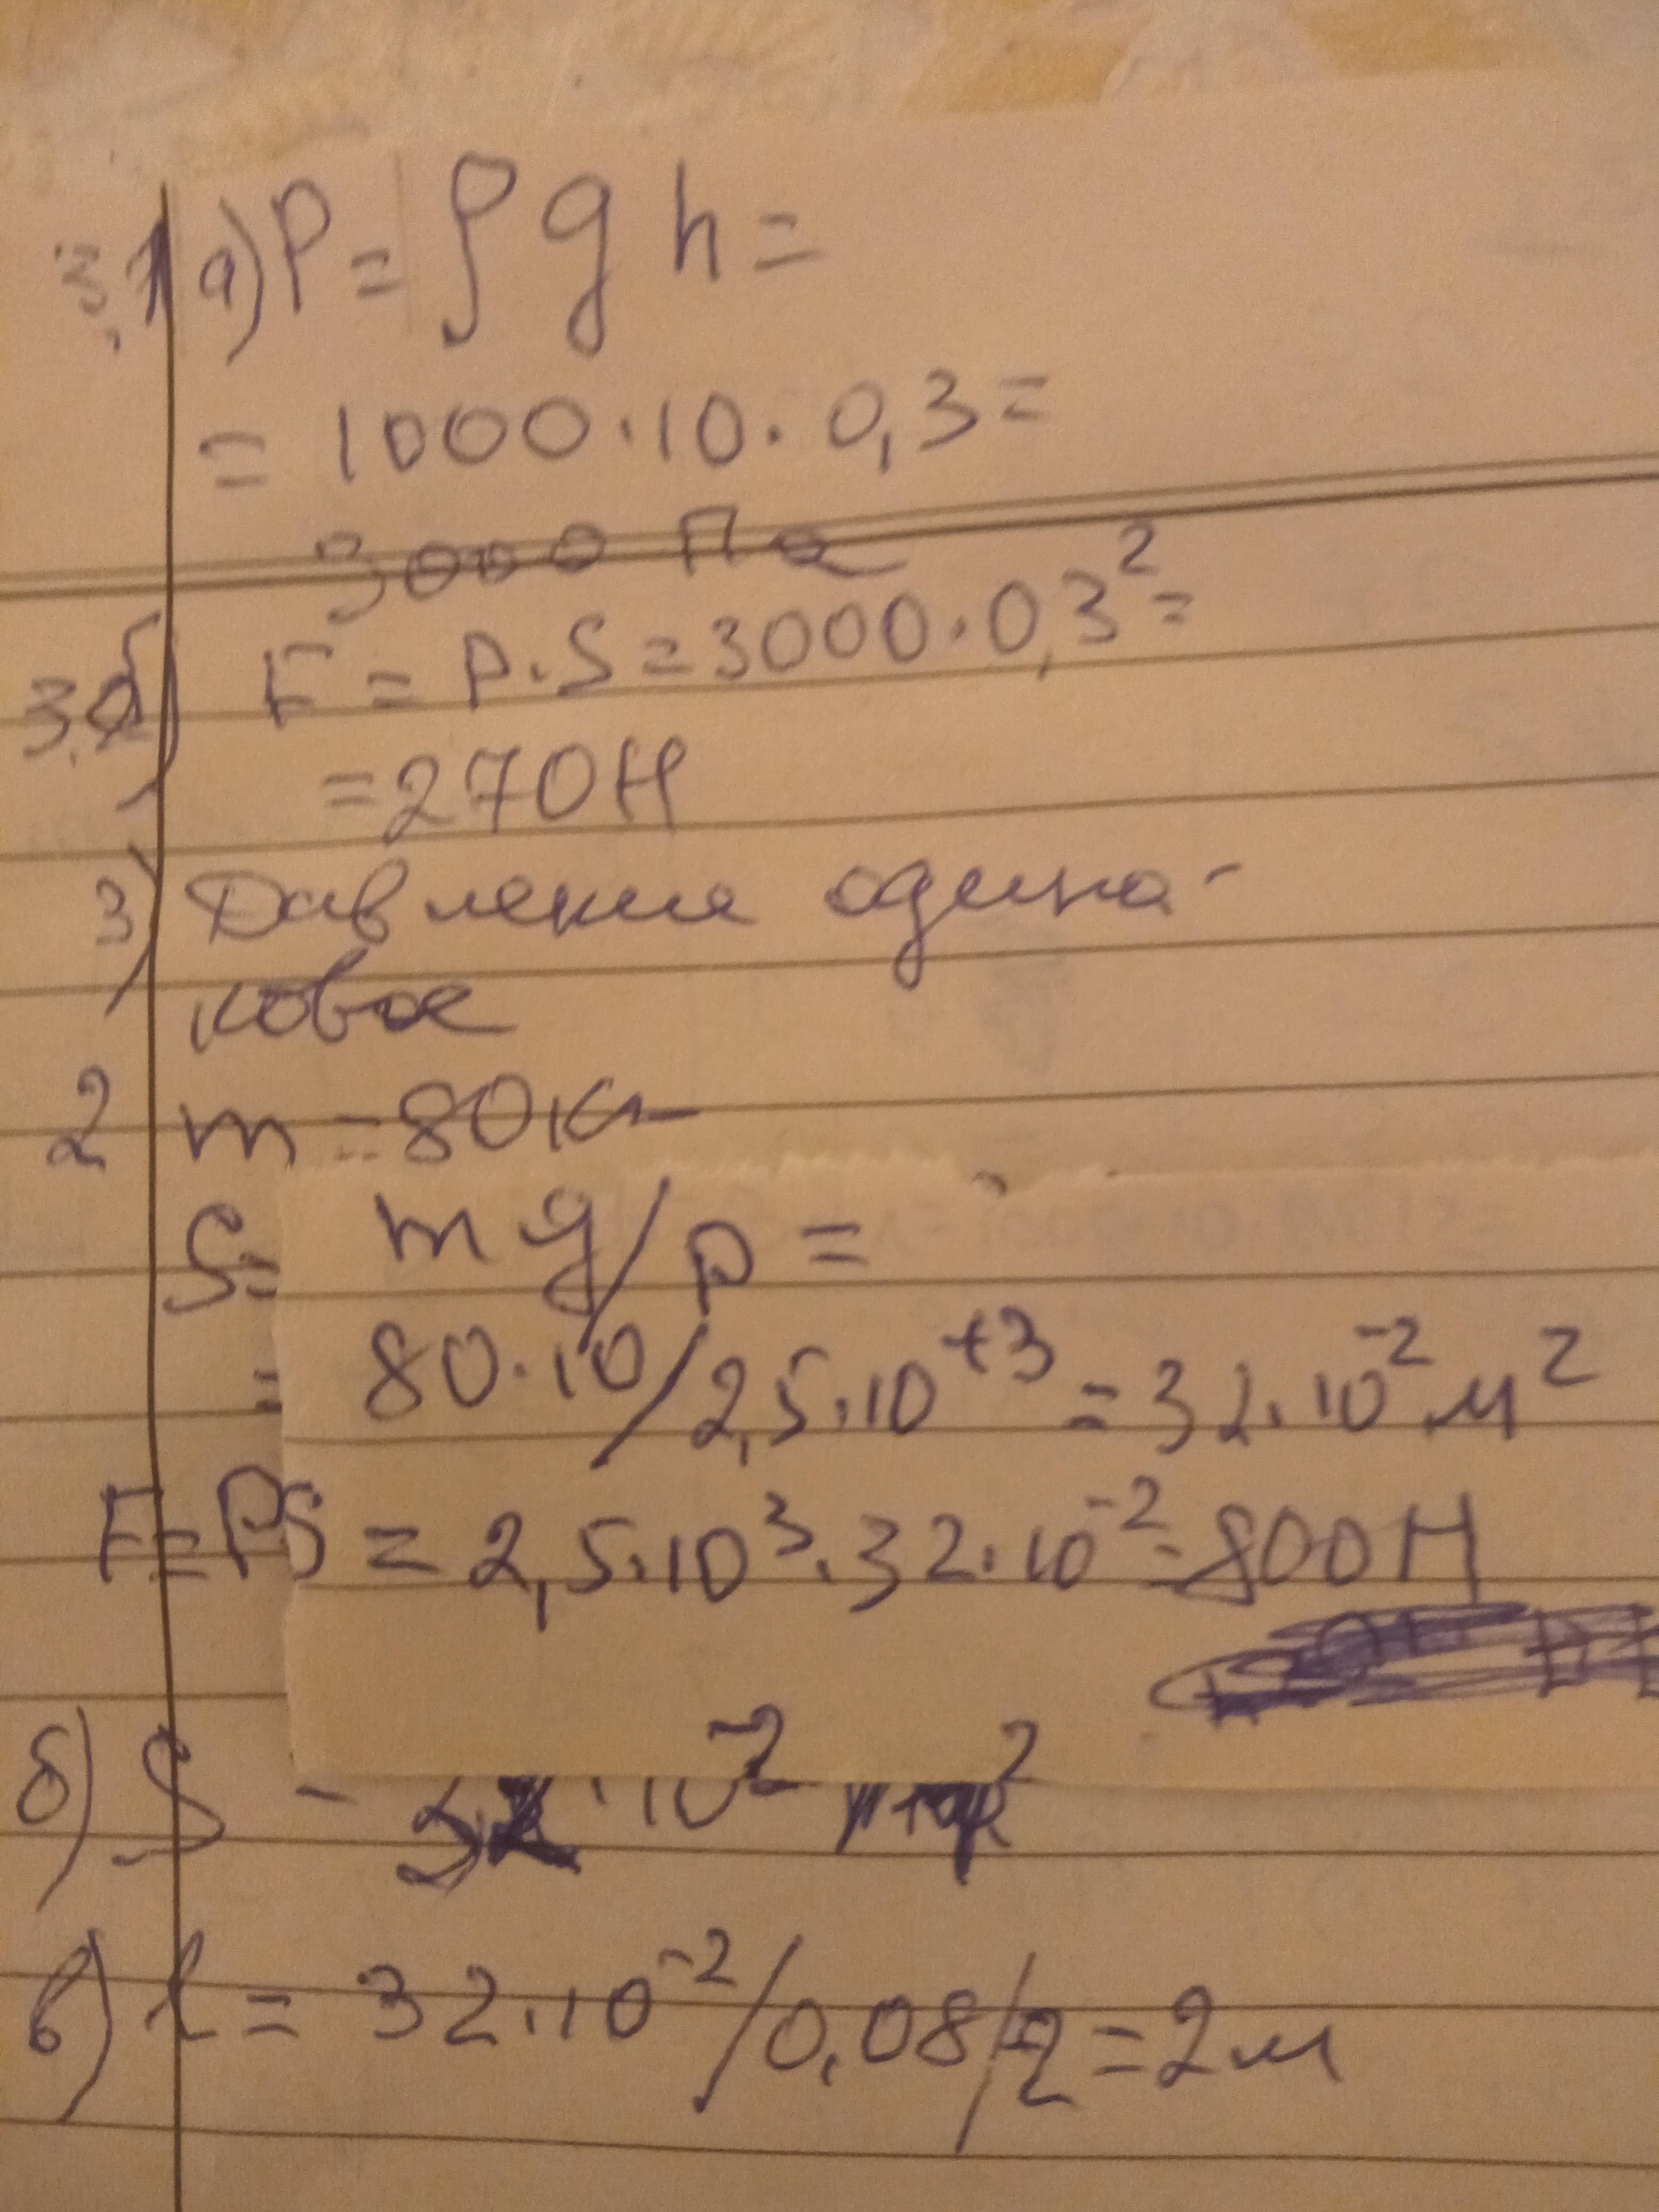 3,1 а) P = ρ g h =
= 1000·10·0,3 =
3000 Па
б) F = P·S = 3000·0,3² =
= 270 Н
3) Давление одина-
ковое
2 m = 80 кг
S = mg/p =
= 80·10/2,5·10⁺³ = 32·10⁻² м²
F = PS = 2,5·10³·32·10⁻² = 800 Н
б) S - ·10⁻²
в) l = 32·10⁻²/0,08/2 = 2 м